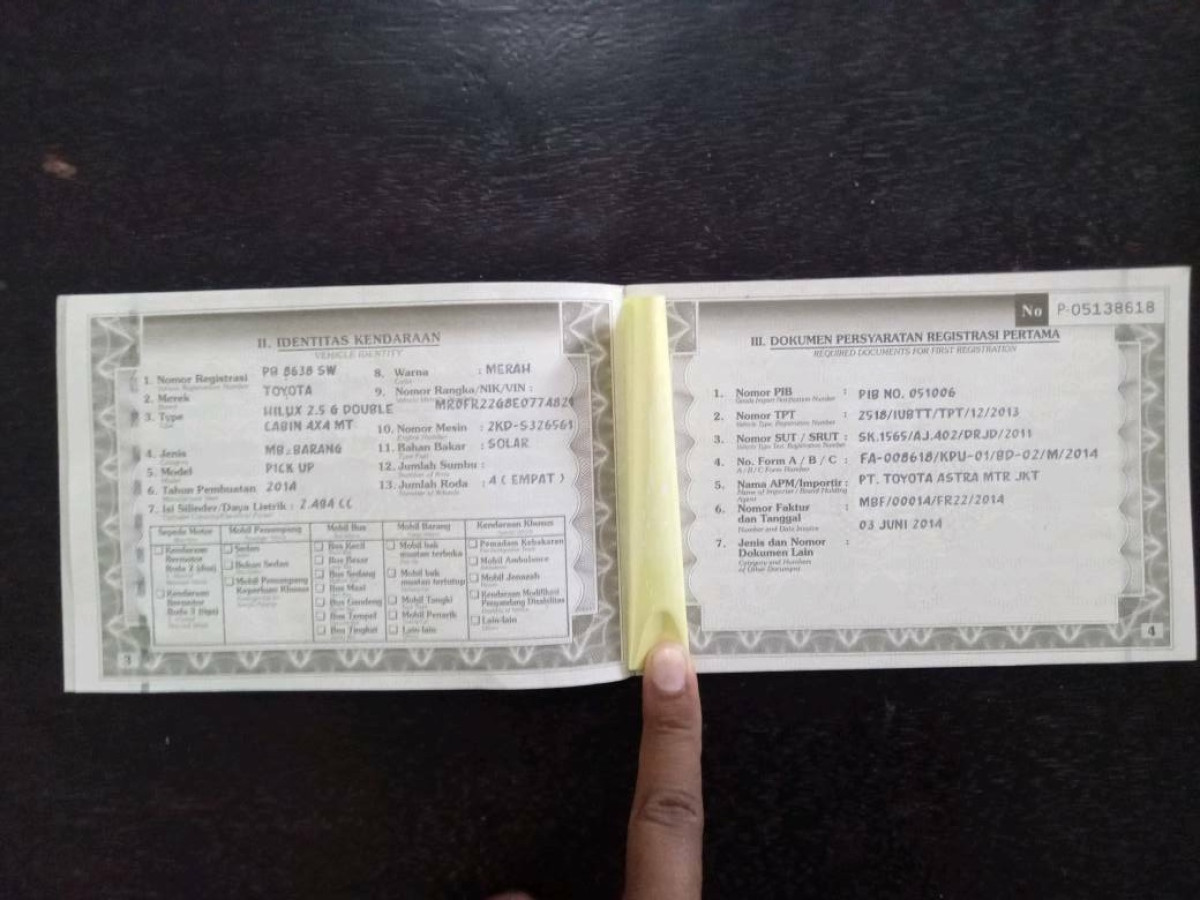 II. IDENTITAS KENDARAAN
VEHICLE IDENTITY
1. Nomor Registrasi PB 8638 SW
Vehicle Registration Number
2. Merek TOYOTA
3. Type HILUX 2.5 G DOUBLE
CABIN 4X4 MT
4. Jenis MB.BARANG
5. Model PICK UP
6. Tahun Pembuatan 2014
7. Isi Silinder/Daya Listrik : 2.494 CC
8. Warna : MERAH
9. Nomor Rangka/NIK/VIN :
MR0FR22G8E0774821
10. Nomor Mesin : 2KD-S326561
11. Bahan Bakar : SOLAR
12. Jumlah Sumbu :
13. Jumlah Roda : 4 ( EMPAT )
Sepeda Motor
Kendaraan
Bermotor
Roda 2 (dua)
Kendaraan
Bermotor
Roda 3 (tiga)
Mobil Penumpang
Sedan
Bukan Sedan
Mobil Penumpang
Keperluan Khusus
Mobil Bus
Bus Kecil
Bus Besar
Bus Sedang
Bus Maxi
Bus Gandeng
Bus Tempel
Bus Tingkat
Mobil Barang
Mobil bak
muatan terbuka
Mobil bak
muatan tertutup
Mobil Tangki
Mobil Penarik
Lain-lain
Kendaraan Khusus
Pemadam Kebakaran
Mobil Ambulance
Mobil Jenazah
Kendaraan Modifikasi
Penyandang Disabilitas
Lain-lain
3
No P-05138618
III. DOKUMEN PERSYARATAN REGISTRASI PERTAMA
REQUIRED DOCUMENTS FOR FIRST REGISTRATION
1. Nomor PIB : PIB NO. 051006
2. Nomor TPT : 2518/IUBTT/TPT/12/2013
3. Nomor SUT / SRUT : SK.1565/AJ.402/DRJD/2011
4. No. Form A / B / C : FA-008618/KPU-01/BD-02/M/2014
A / B / C Form Number
5. Nama APM/Importir : PT. TOYOTA ASTRA MTR JKT
6. Nomor Faktur MBF/00014/FR22/2014
dan Tanggal 03 JUNI 2014
7. Jenis dan Nomor :
Dokumen Lain
Category and Numbers
of Other Document
4